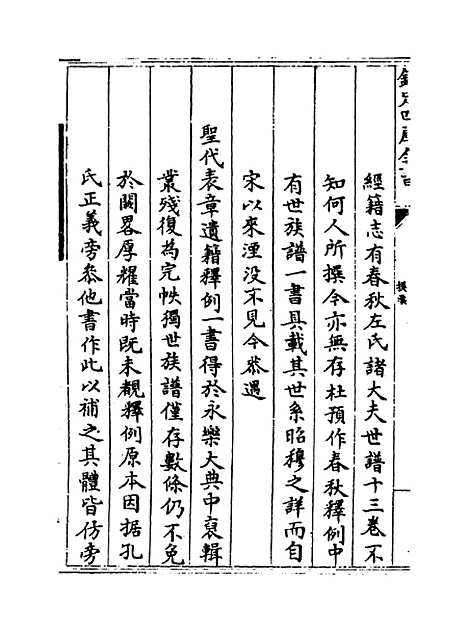 欽定四庫全書
提要
經籍志有春秋左氏諸大夫世譜十三卷不
知何人所撰今亦無存杜預作春秋釋例中
有世族譜一書具載其世系昭穆之詳而自
宋以來湮没不見今恭遇
聖代表章遺籍釋例一書得於永樂大典中裒輯
叢殘復為完帙獨世族譜僅存數條仍不免
於闕畧厚耀當時既未覩釋例原本因据孔
氏正義旁叅他書作此以補之其體皆仿旁